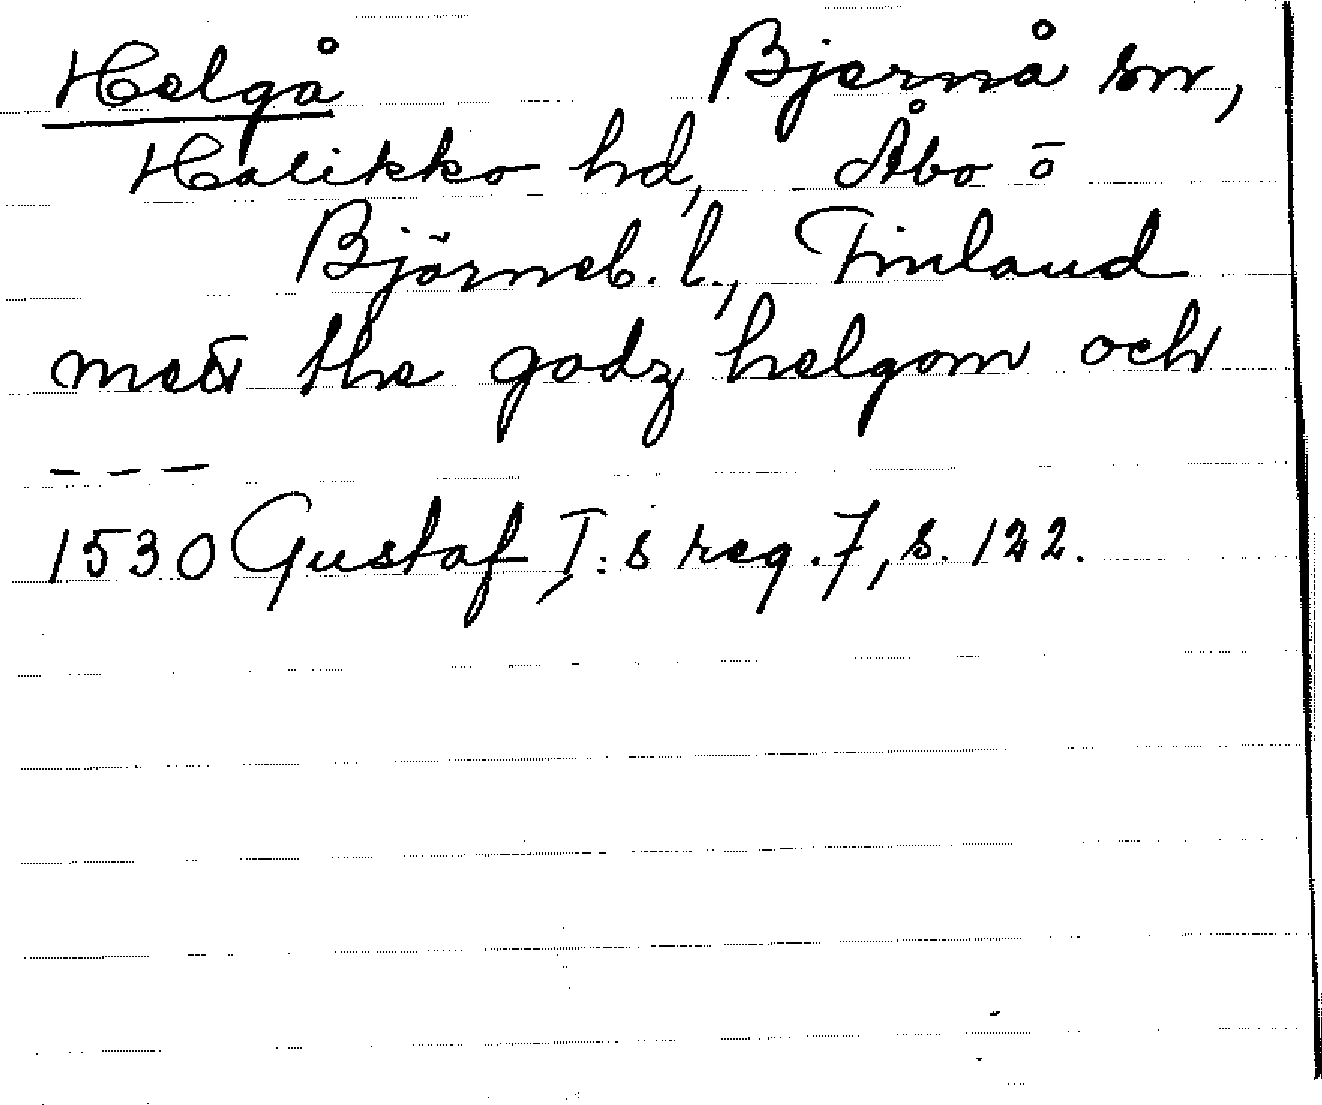 Helgå Bjernå sn,
Halikko hd, Åbo o
Björneb. l., Finland
mett the godz helgom och
- - -
1530 Gustaf I:s reg. 7, s. 122.